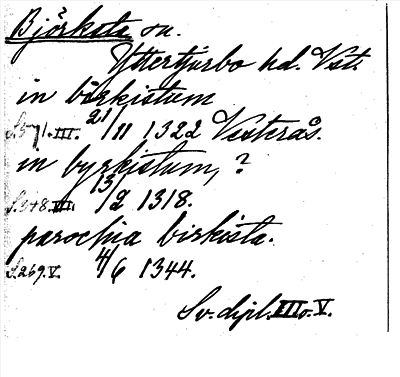 Björksta sn.
Yttertjurbo hd. Vst.
in birkistum
S.571.III. 21/11 1322 Vesterås.
in byrkistum, ?
S.348.III. 13/2 1318.
parochia birkista.
S.269.V. 4/6 1344.
Sv. dipl. III o. V.